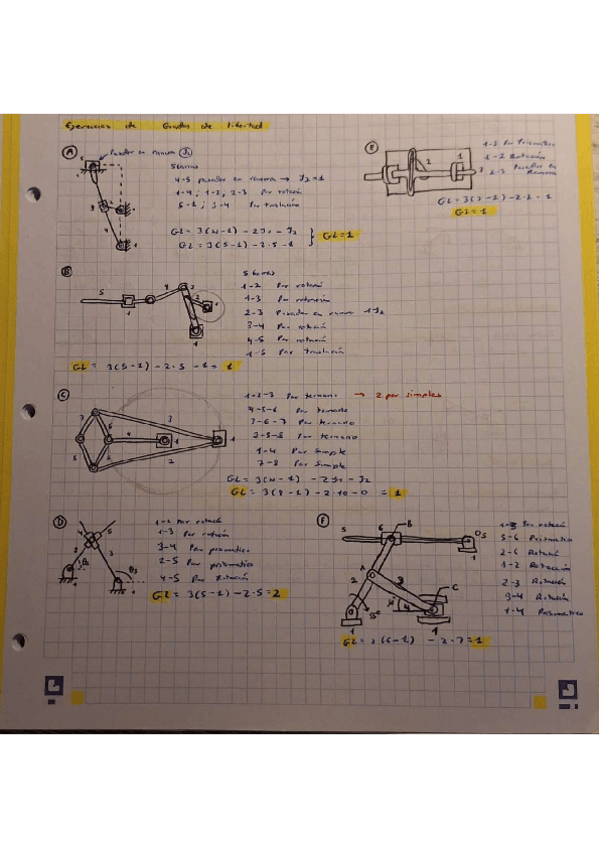 Ejercicios de Grados de libertad
A
Pasador en ranura J2
5 barras
4-5 pasador en ranura → J2=1
1-4; 1-2; 2-3 Par rotación
5-1; 3-4 Par traslación
GL = 3(N-1) - 2J1 - J2
GL = 3(5-1) - 2·5 - 1
GL=1
B
5 barras
1-2 Par rotación
1-3 Par rotación
2-3 Pasador en ranura 1J2
3-4 Par rotación
4-5 Par rotación
1-5 Par traslación
GL = 3(5-1) - 2·5 - 1 = 1
C
1-2-3 Par ternario → 2 par simples
4-5-6 Par ternario
3-6-7 Par ternario
2-5-8 Par ternario
1-4 Par simple
7-8 Par simple
GL = 3(N-1) - 2J1 - J2
GL = 3(8-1) - 2·10 - 0 = 1
D
1-2 Par rotación
1-3 Par rotación
3-4 Par prismatico
2-5 Par prismatico
4-5 Par Rotación
GL = 3(5-1) - 2·5 = 2
E
1-3 Par Prismatico
1-2 Rotación
2-3 Pasador en Ranura
GL = 3(3-1) - 2·2 - 1
GL = 1
F
1-5 Par rotación
5-6 Prismatico
2-6 Rotación
1-2 Rotación
2-3 Rotación
3-4 Rotación
1-4 Prismatico
GL = 3(6-1) - 2·7 = 1